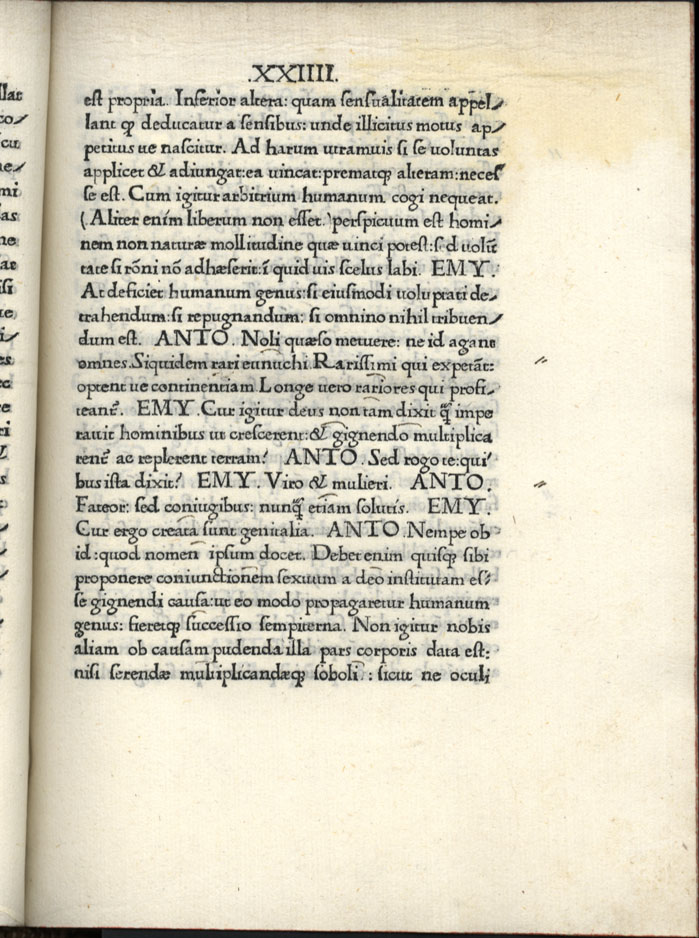 .XXIIII.
est propria. Inferior altera: quam sensualitatem appel⸗
lant ꝙ deducatur a sensibus: unde illicitus motus ap⸗
petitus ue nascitur. Ad harum utramuis si se uoluntas
applicet & adiungat: ea uincat: prematqꝫ alteram: neces⸗
se est. Cum igitur arbitrium humanum cogi nequeat.
(Aliter enim liberum non esset.) perspicuum est homi⸗
nem non naturæ mollitudine quæ uinci potest: sed volūt
tate si rōni nō adhæserit: ī quid uis scelus labi. EMY.
At deficiet humanum genus: si eiusmodi uoluptati de⸗
trahendum: si repugnandum: si omnino nihil tribuen⸗
dum est. ANTO. Noli quæso metuere: ne id agant
omnes. Siquidem rari eunuchi. Rarissimi qui expetāt:
optent ue continentiam. Longe uero rariores qui profi⸗
teant̃. EMY. Cur igitur deus non tam dixit q̃ꝫ impe
rauit hominibus ut crescerent: & gignendo multiplica
rent̃ ac replerent terram? ANTO. Sed rogo te: qui⸗
bus ista dixit? EMY. Viro & mulieri. ANTO.
Fateor: sed coniugibus: nunq̃ꝫ etiam solutis. EMY.
Cur ergo creata sunt genitalia. ANTO. Nempe ob
id: quod nomen ipsum docet. Debet enim quisqꝫ sibi
proponere coniunctionem sexuum a deo institutam es⸗
se gignendi causa: ut eo modo propagaretur humanum
genus: fieretqꝫ successio sempiterna. Non igitur nobis
aliam ob causam pudenda illa pars corporis data est:
nisi serendæ multiplicandæqꝫ soboli : sicut ne oculi